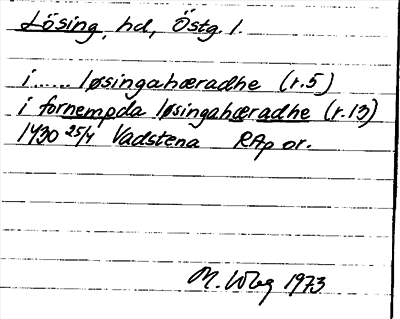 Lösing, hd, Östg. l.
i ...... løsingahæradhe (r.5)
i fornempda løsingahæradhe (r.13)
1430 25/4 Vadstena RAp or.
M. 1973